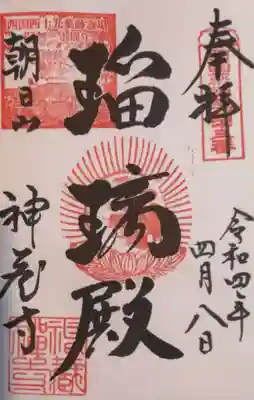 奉拝
令和四年
四月八日
瑠璃殿
朝日山
神蔵寺